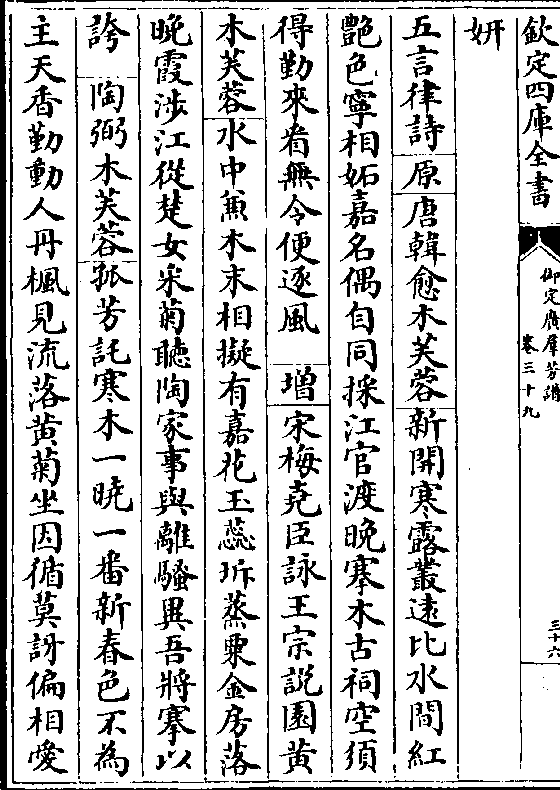 欽定四庫全書
御定廣羣芳譜
卷三十九
三十六
妍
五言律詩原唐韓愈木芙蓉新開寒露叢遠比水間紅
艷色寧相妬嘉名偶自同採江官渡晚搴木古祠空須
得勤來看無令便逐風增宋梅堯臣詠王宗說園黄
木芙蓉水中無木末相擬有嘉花玉蕊坼蒸粟金房落
晚霞涉江從楚女采菊聽陶家事與離騷異吾將搴以
誇陶弼木芙蓉孤芳託寒木一曉一番新春色不為
主天香勤動人丹楓見流落黄菊坐因循莫訝偏相愛